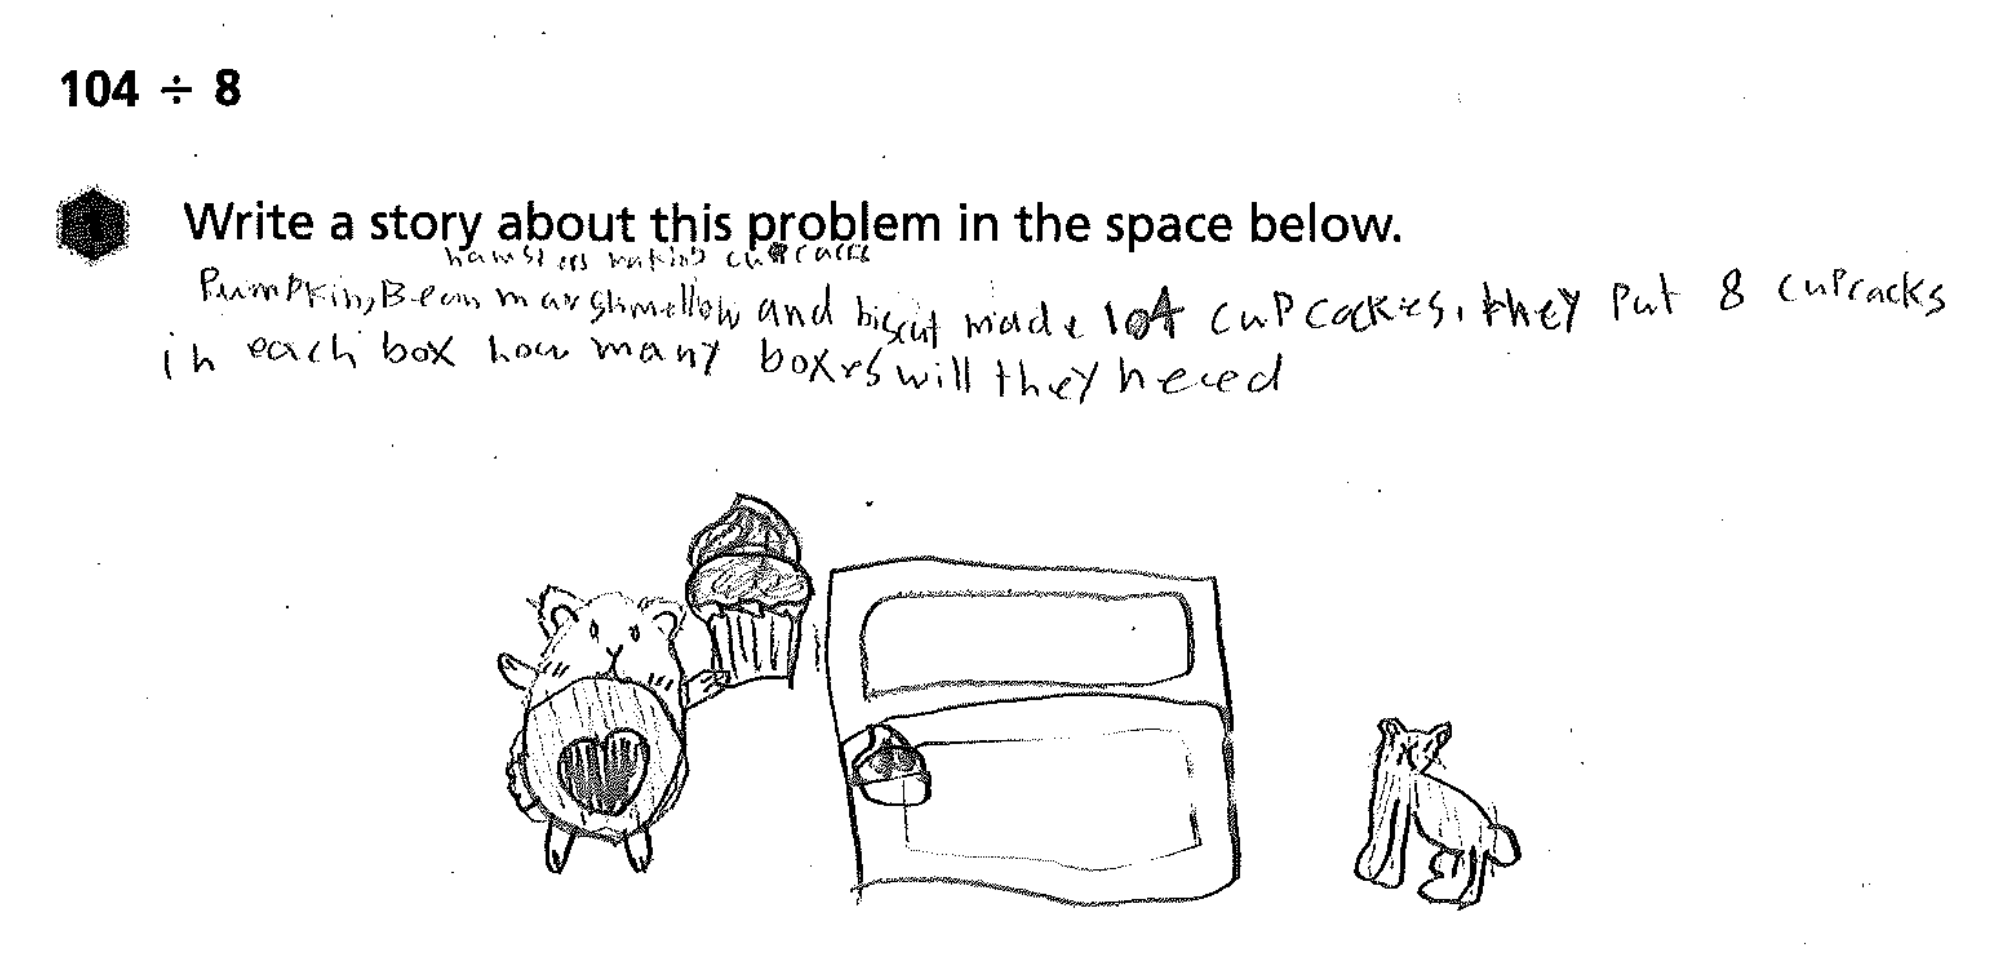 104 ÷ 8
1 Write a story about this problem in the space below.
hamsters making cupcakes
Pumpkin, Bean marshmellow and biscut made 104 cupcackes. they put 8 cupcacks
in each box how many boxes will they heed